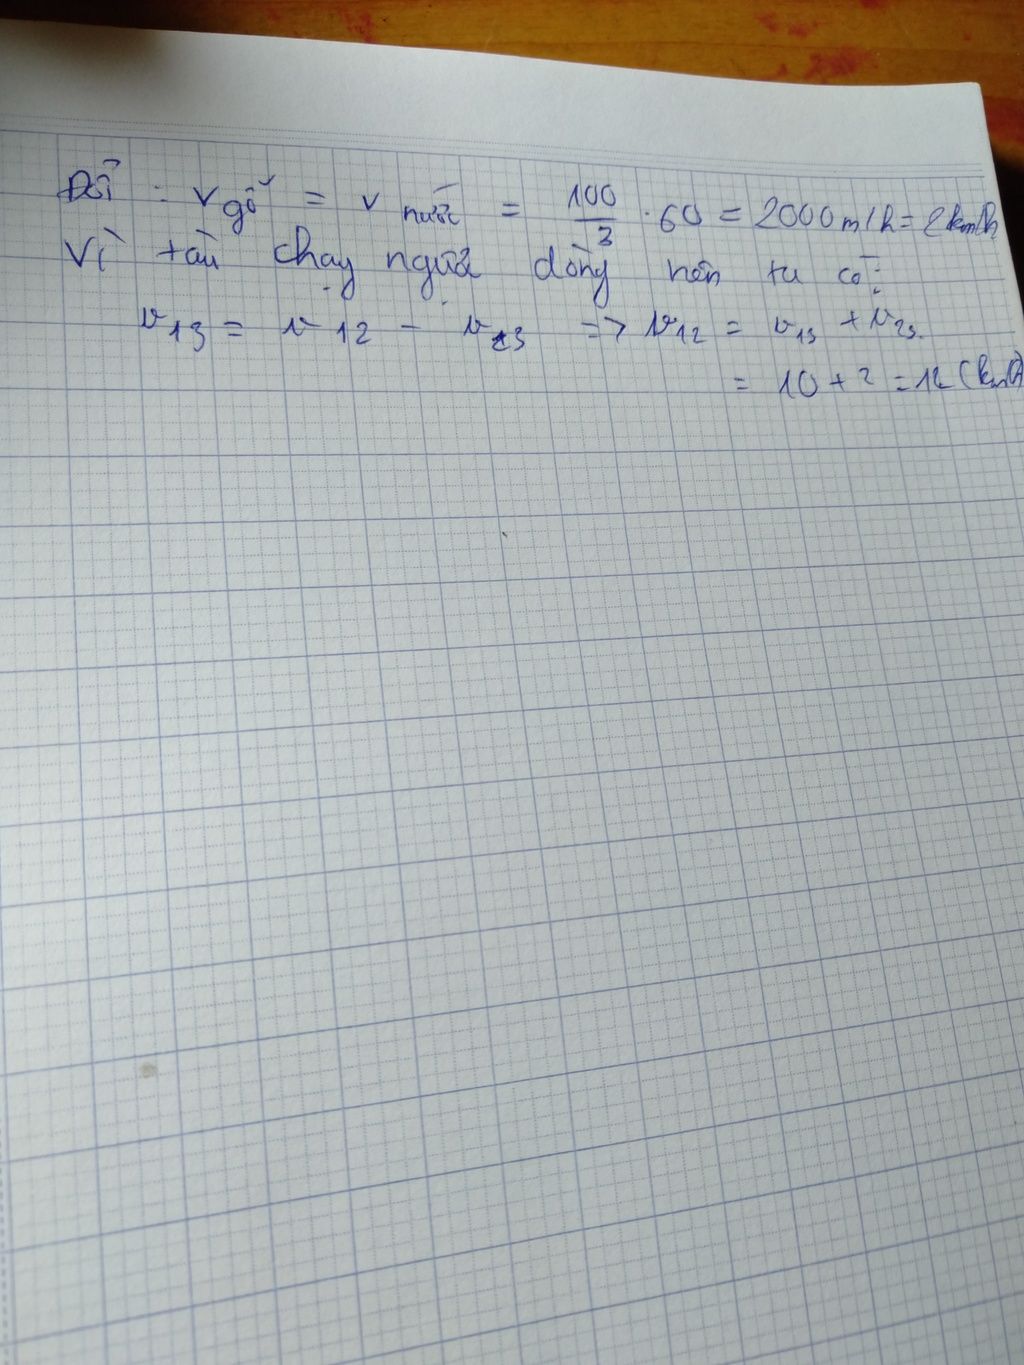 Đổi : v gỗ = v nước = 100/3 . 60 = 2000 m/h = 2 km/h
Vì tàu chạy ngựa dòng nên ta có:
v13 = v12 - v23 => v12 = v13 + v23.
= 10 + 2 = 12 (km/h)